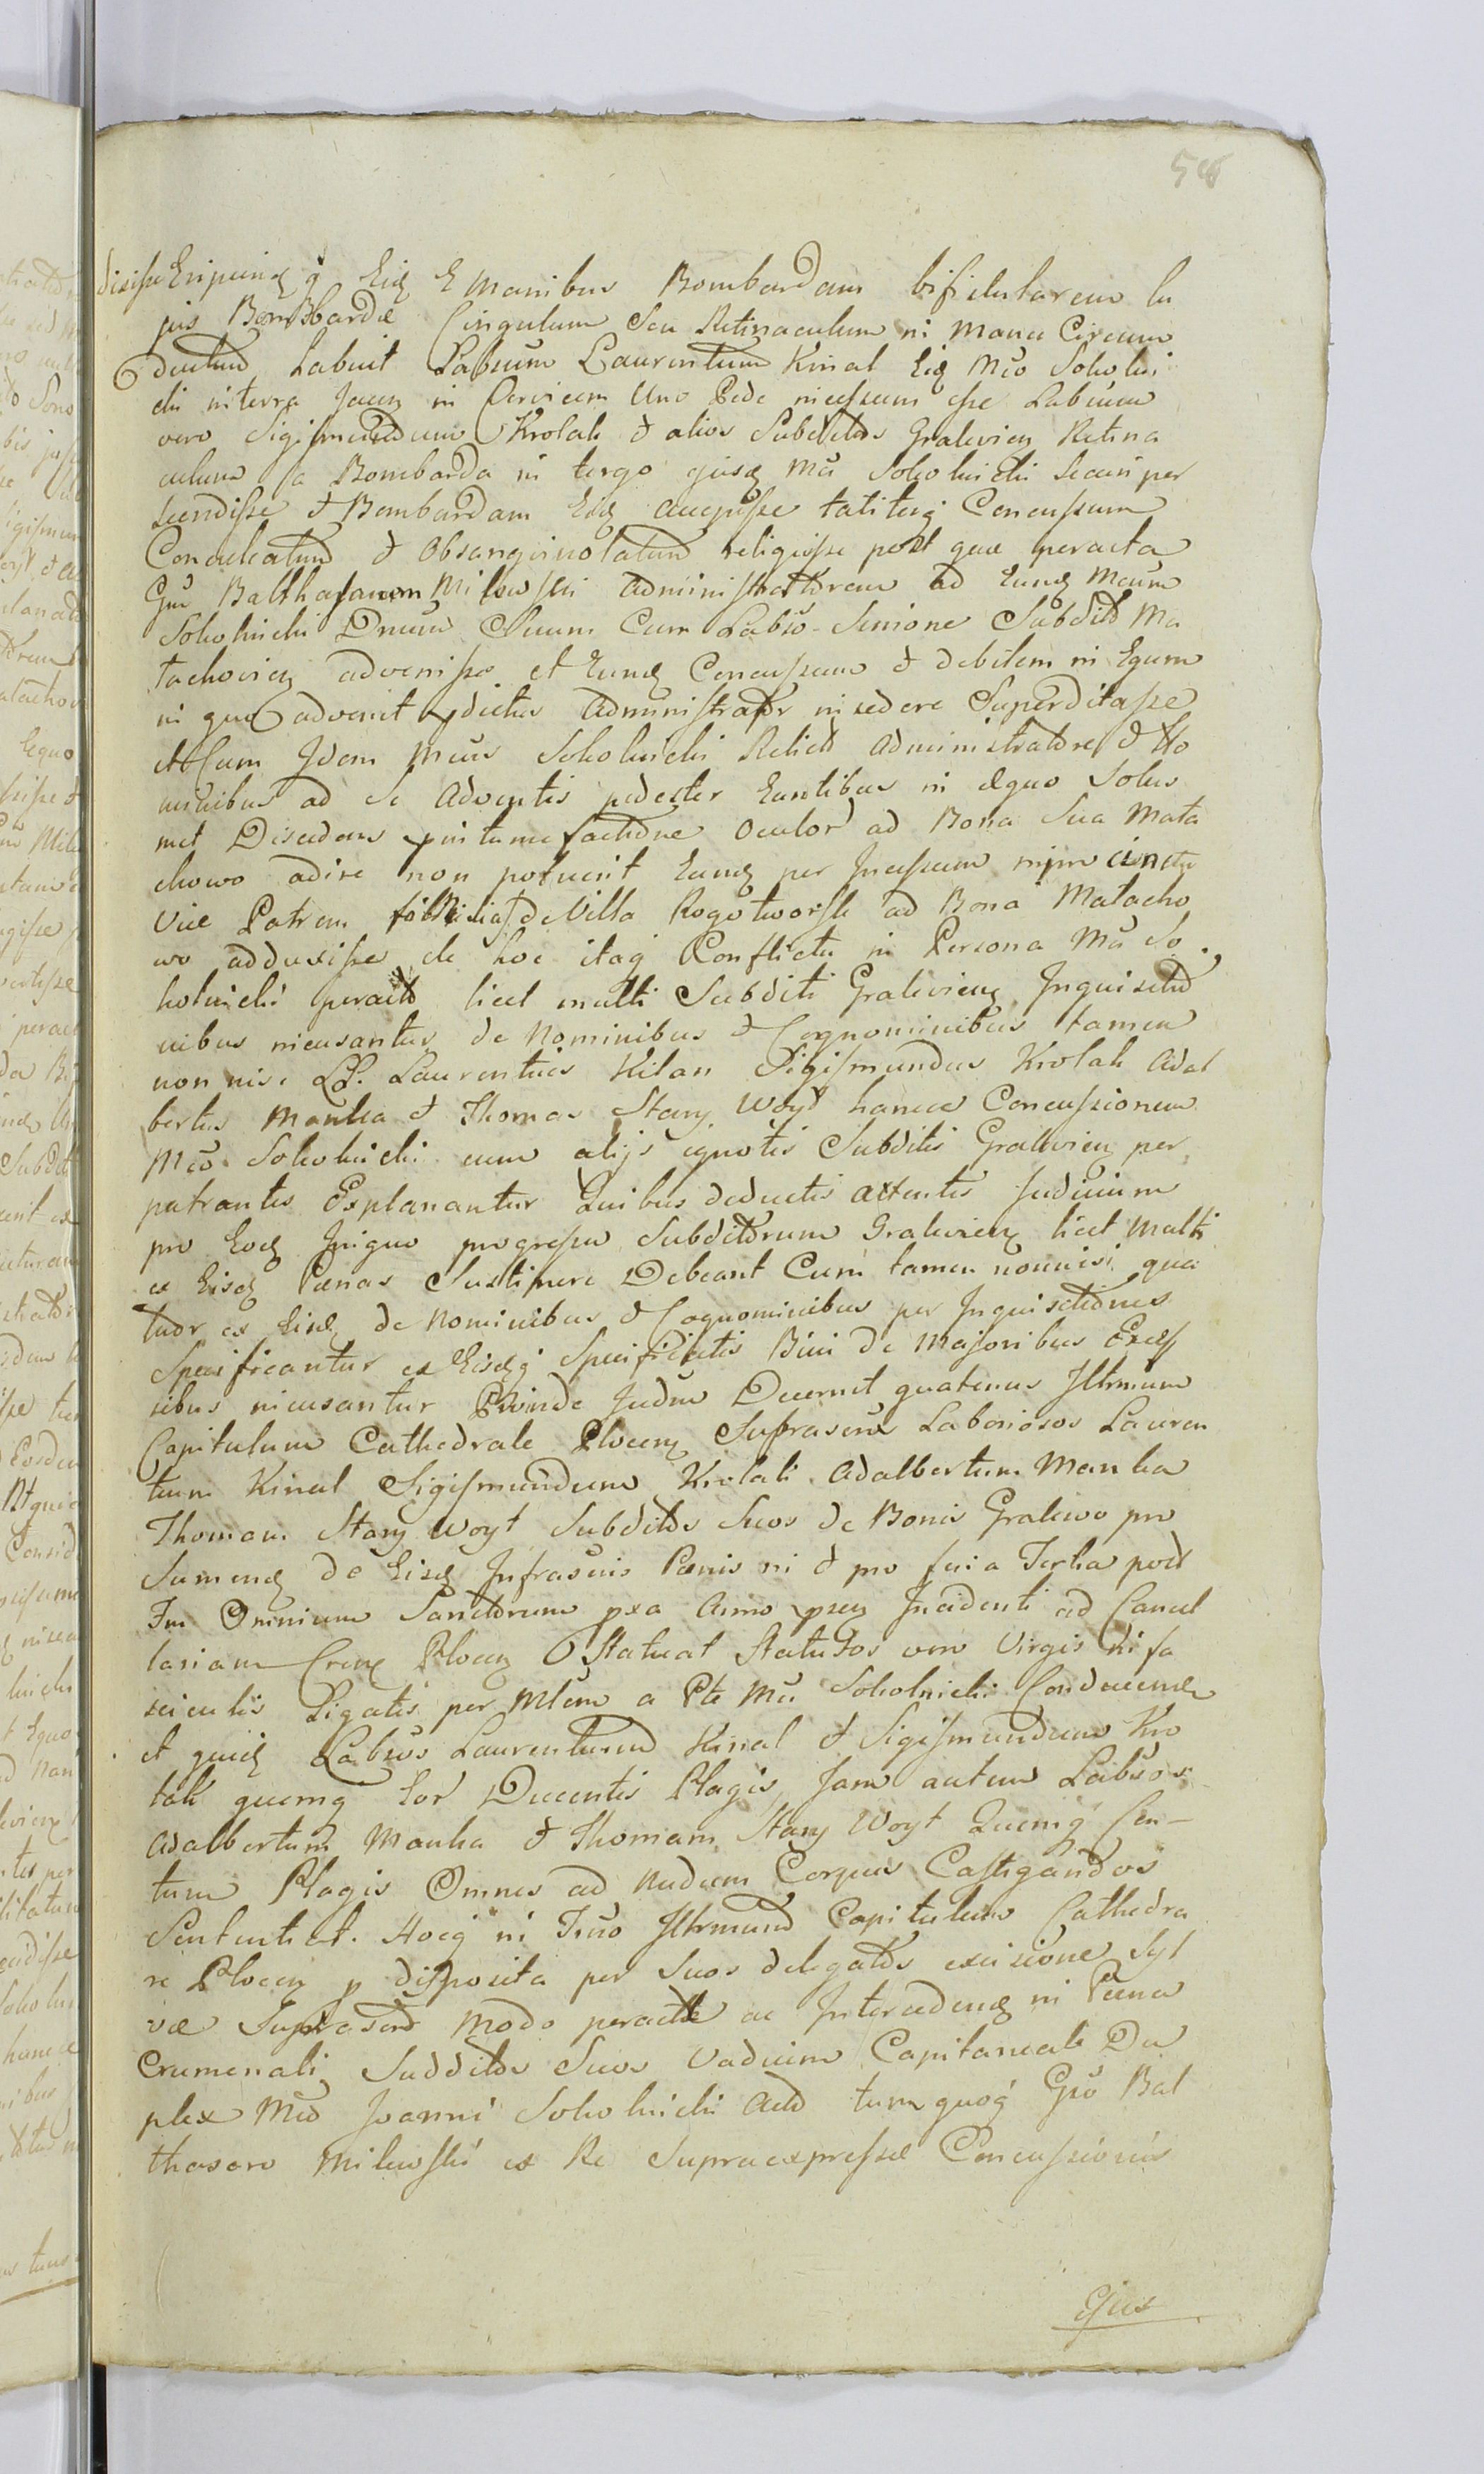 58
Eripiend q̃ Eid E Manibus Bombardam bifistularem Cu
jus Bombardæ Cingulum Seu Retinaculum in Manu Circum
ductum habuit Labsum Laurentium Kinal Eid Mco Sokolni
cki in terra Jacen in Cervicem Uno Pede incussum esse Labsum
vero Sigismundum Krolak & alios Subditos Gralevien Retina
culum a Bombarda in tergo ejusd Mci Sokolnicki Securi per
scendisse & Bombardam Eid accepisse taliterq Concussum
Conculcatum & Obsanguinolatum reliquisse post quæ peracta
Gnu Balthasarem Milewski Administratorem ad Eund Mcum
Sokolnicki Dnum Suum Cum Labso Simone Subdito Ma
tachovien advenisse et Eund Concussum & debilem in Equm
in quo advenit pdictus Administrator insedere Superditasse
et Cum Idem Mcus Sokolnicki Relicto Administratore & Ho
minibus ad se Adventis pedester Euntibus in Equo Solus
met Discedens p intumefactione Oculor ad Bona Sua Mata
chowo adire non potuerit Eund per Incussum
Viæ Patrem de Villa Rogotworsk ad Bona Matacho
wo adduxisse de hoc itaq Conflictu in Persona Mci So
kolnicki peracto licet multi Subditi Gralevien Inquisitio
nibus incusantur de Nominibus & Cognominibus tamen
non nisi LL. Laurentius Kilan Sigismundus Krolak Adal
bertus Manka & Thomas Stary Woyt hancce Concussionem
Mco Sokolnicki cum alijs ignotis Subditis Gralevien per
patrantes Explanantur Quibus deductis attentis Judicium
pro Eod Iniquo progressu Subditorum Gralevien licet Multi
ex Eisd Pænas Sustinere Debeant Cum tamen nonnisi qua
tuor ex Eisd de Nominibus & Cognominibus per Inquisitiones
Specificantur ex Eisdq Specificatis Bini de Majoribus Exces
sibus incusantur Proinde Judm Decernit quatenus Illrmum
Capitulum Cathedrale Plocen Suprascrm Laboriosos Lauren
tium Kinal Sigismundum Krolak Adalbertum Manka
Thomam Stary Woyt Subditos Suos de Bonis Gralewo pro
Sumend de Eisd Infrascris Pænis in & pro feria Tertia post
Fm Omnium Sanctorum pxa Anno psen Incidenti ad Cancel
lariam Cren Plocen Statuat Statutos vero Virgis in fa
sciculis Ligatis per Mlem a Pte Mci Sokolnicki Conducend
et quid Labsos Laurentium Kinal & Sigismundum Kro
lak quemq Eor Ducentis Plagis, Jam autem Labsos
Adalbertum Manka & Thomam Stary Woyt Quemq Cen-
tum Plagis Omnes ad Nudum Corpus Castigandos
Sententiat. Hocq in Tno Illrmum Capitulum Cathedra
re Plocen p disposita per Suos delegatos excisione Syl
væ Suprascrto modo peracta ac Intercedend in Pæna
Crumenali Subditos Suos Vadium Capitaneale Du
plex Mco Joanni Sokolnicki Actd tum quoq Gso Bal
thasaro Milewski ex Re Supraexpressæ Concussionis
Ejus